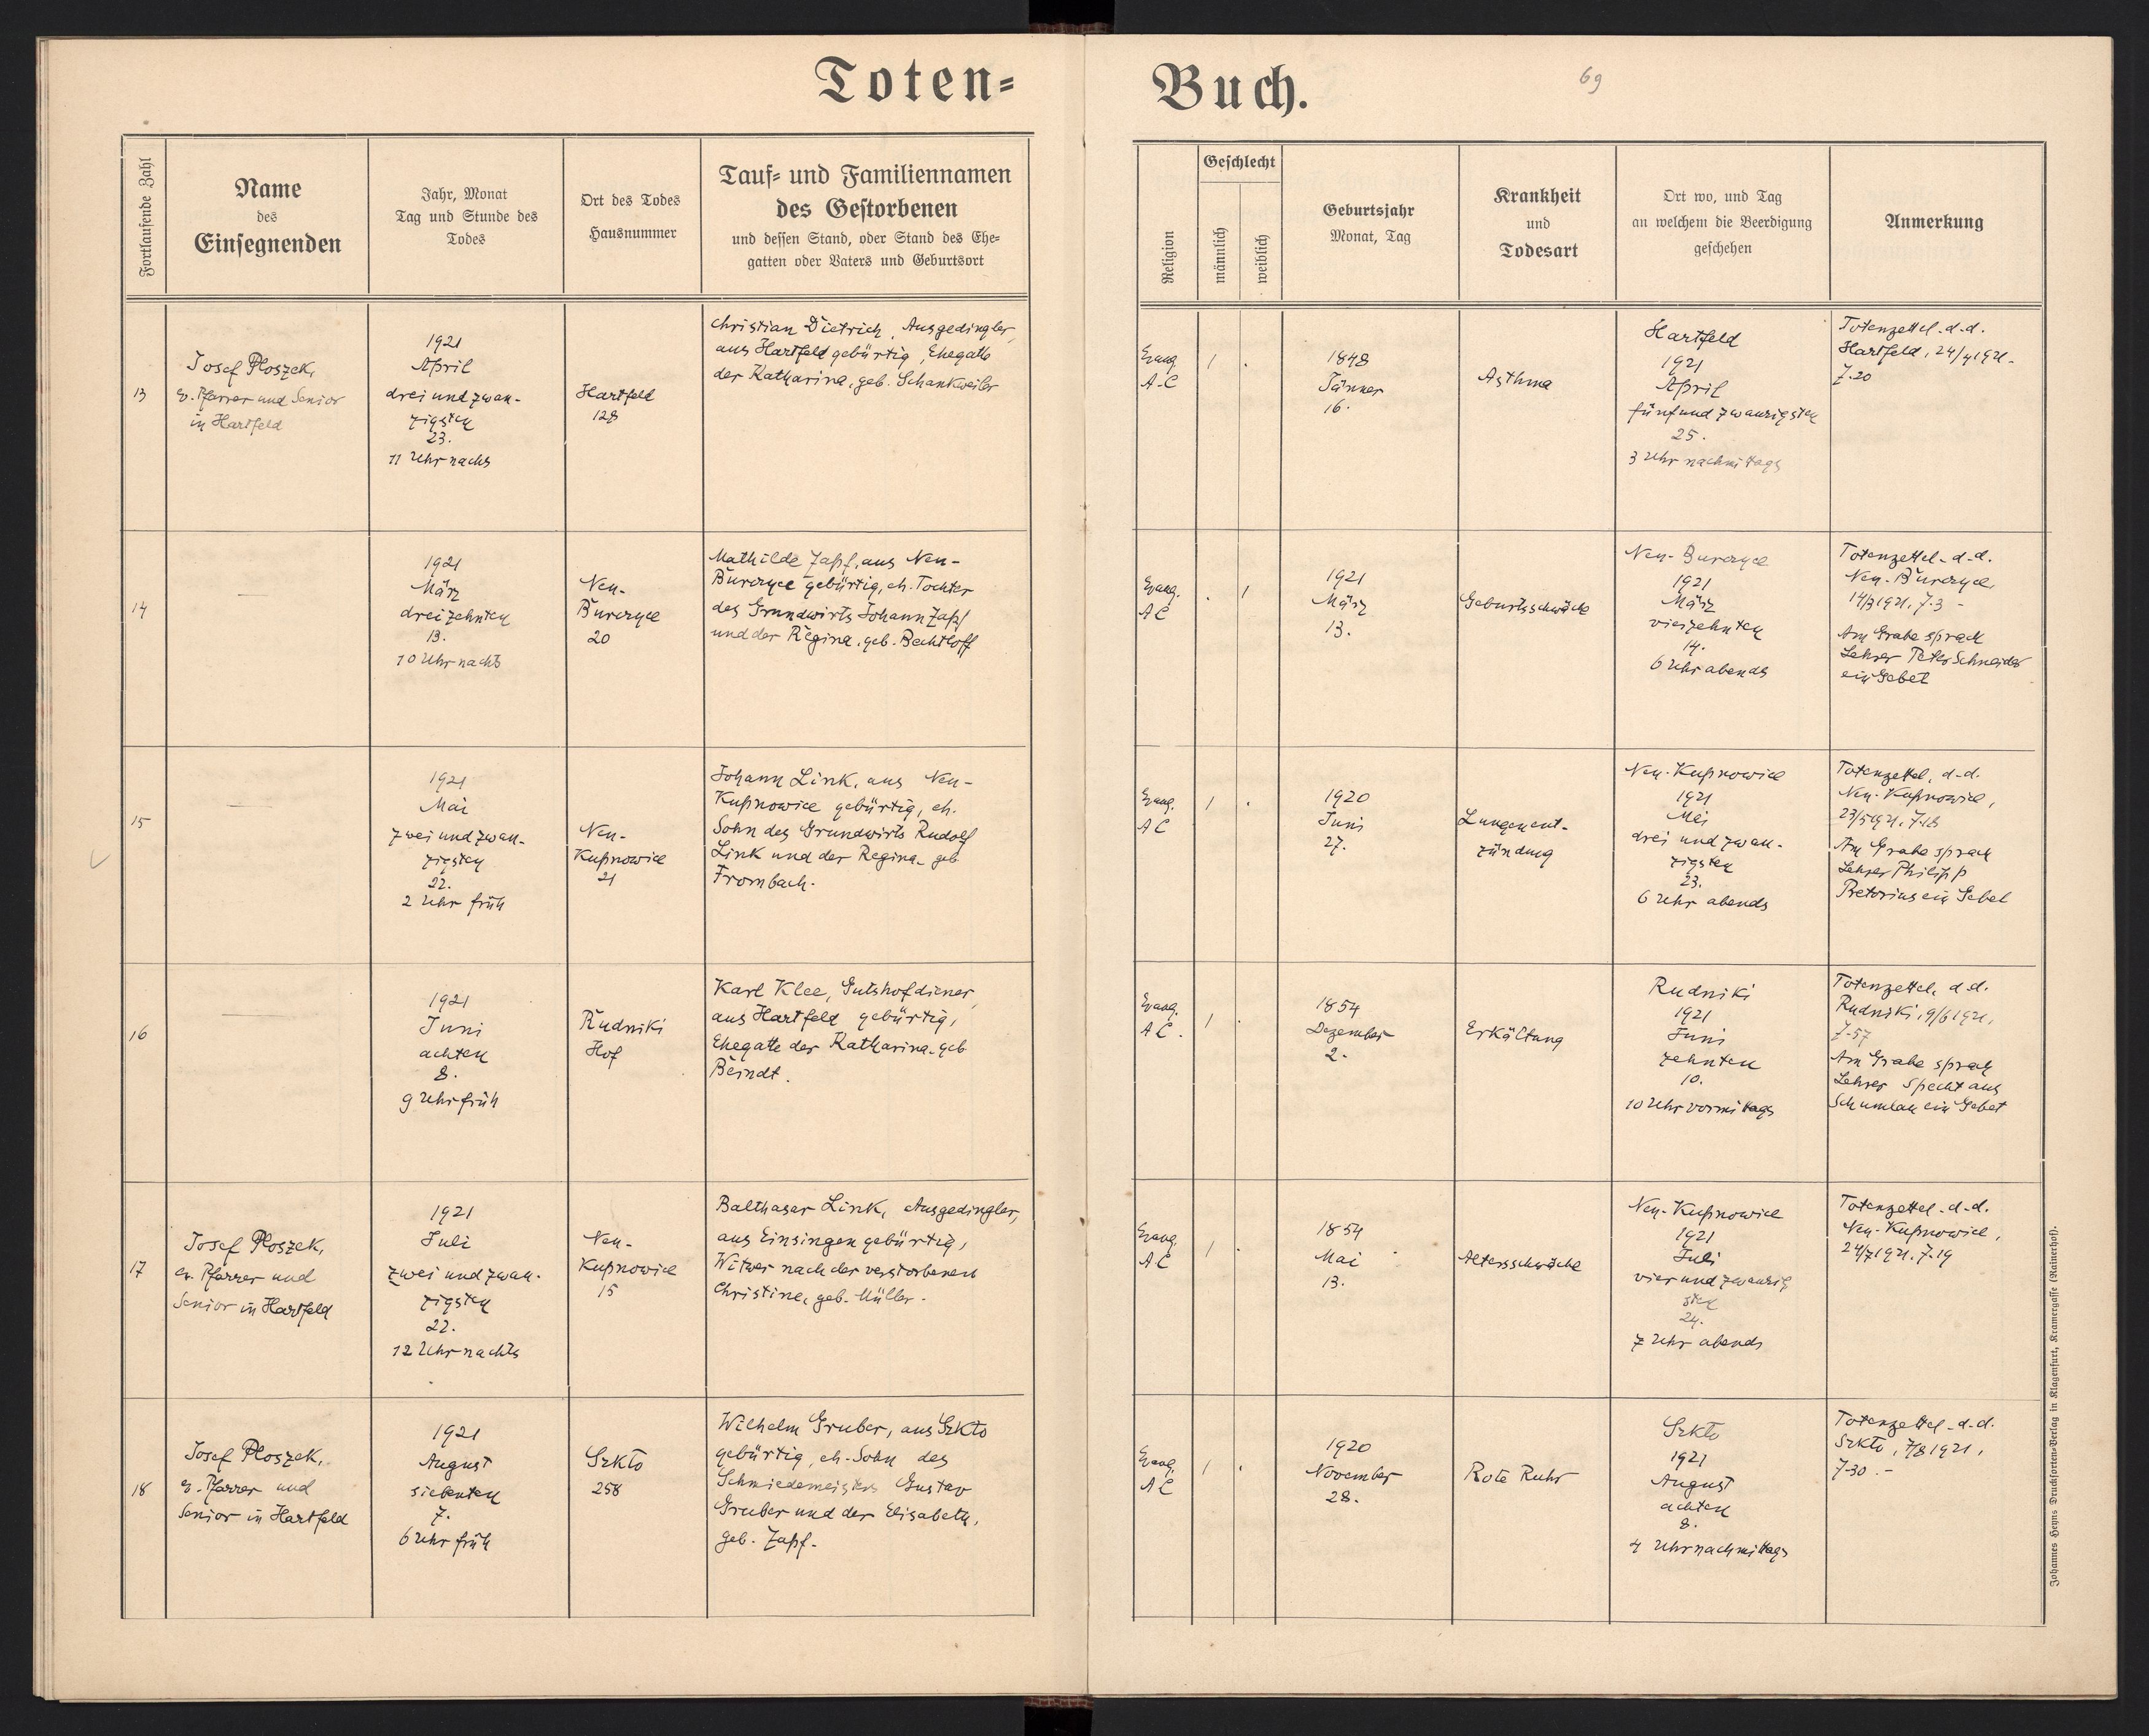 Toten=
Buch.
69
Fortlaufende Zahl
Name
des
Einsegnenden
Jahr, Monat
Tag und Stunde des
Todes
Ort des Todes
Hausnummer
Tauf= und Familiennamen
des Gestorbenen
und dessen Stand, oder Stand des Ehe=
gatten oder Vaters und Geburtsort
Religion
Geschlecht
männlich
weiblich
Geburtsjahr
Monat, Tag
Krankheit
und
Todesart
Ort wo, und Tag
an welchem die Beerdigung
geschehen
Anmerkung
13
Josef Ploszek,
ev. Pfarrer und Senior
in Hartfeld
1921
April
drei und zwan-
zigsten
23.
11 Uhr nachs
Hartfeld
128
Christian Dietrich, Ausgedingler,
aus Hartfeld gebürtig, Ehegatte
der Katharina, geb. Schankweiler
Evang.
A-C
1
.
1848
Jänner
16.
Asthma
Hartfeld
1921
April
fünfund zwanzigsten
25.
3 Uhr nachmittags
Totenzettel-d.d.
Hartfeld, 24/4 1921-
Z-20
14
—
1921
März
dreizehnten
13.
10 Uhr nachts
Neu-
Burczyce
20
Mathilde Zapf, aus Neu-
Burczyce gebürtig, eh. Tochter
des Grundwirts Johann Zapf
und der Regina, geb. Bechtloff
Evang.
A C
.
1
1921
März
13.
Geburtsschwäche
Neu-Burczyce
1921
März
vierzehnten
14.
6 Uhr abends
Totenzettel-d.d.
Neu-Burczyce,
14/3 1921. Z-3 -
Am Grabe sprach
Lehrer Peter Schneider
ein Gebet
15
—
1921
Mai
zwei und zwan-
zigsten
22.
2 Uhr früh
Neu-
Kupnowice
21
Johann Link, aus Neu-
Kupnowice gebürtig, eh.
Sohn des Grundwirts Rudolf
Link und der Regina- geb
Frombach.
Evang.
A C
1
.
1920
Juni
27.
Lungenent-
zündung
Neu-Kupnowice
1921
Mai
drei und zwan-
zigsten
23.
6 Uhr abends
Totenzettel, d-d.
Neu-Kupnowice,
23/5 1921. Z-18
Am Grabe sprach
Lehrer Philipp
Pretorius ein Gebet
16
—
1921
Juni
achten
8.
9 Uhr früh
Rudniki
Hof
Karl Klee, Gutshofdiener,
aus Hartfeld gebürtig,
Ehegatte der Katharina-geb
Berndt.
Evang.
A C.
1
.
1854
Dezember
2.
Erkältung
Rudniki
1921
Juni
zehnten
10.
10 Uhr vormittags
Totenzettel, d.d.
Rudniki, 9/6 1921,
Z-57
Am Grabe sprach
Lehrer Specht aus
Schumlau ein Gebet
17
Josef Ploszek,
ev. Pfarrer und
Senior in Hartfeld
1921
Juli
zwei und zwan-
zigsten
22.
12 Uhr nachts
Neu-
Kupnowice
15
Balthasar Link, Ausgedingler,
aus Einsingen gebürtig,
Witwer nach der verstorbenen
Christine, geb. Müller.
Evang.
A C
1
.
1854
Mai
13.
Altersschwäche
Neu-Kupnowice
1921
Juli
vier und zwanzig
sten
24.
7 Uhr abends
Totenzettel-d-d.
Neu-Kupnowice,
24/7 1921. Z-19
18
Josef Ploszek,
ev. Pfarrer und
Senior in Hartfeld
1921
August
siebenten
7.
6 Uhr früh
Szkło
258
Wilhelm Gruber, aus Szkło
gebürtig, eh. Sohn des
Schmiedemeisters Gustav
Gruber und der Elisabeth,
geb. Zapf.
Evang.
A C
1
.
1920
November
28.
Rote Ruhr
Szkło
1921
August
achten
8.
4 Uhr nachmittags
Totenzettel-d.d.
Szkło, 7/8 1921,
Z-30.-
Johannes Heyns Drucksorten=Verlag in Klagenfurt, Kramergasse (Rainerhof).